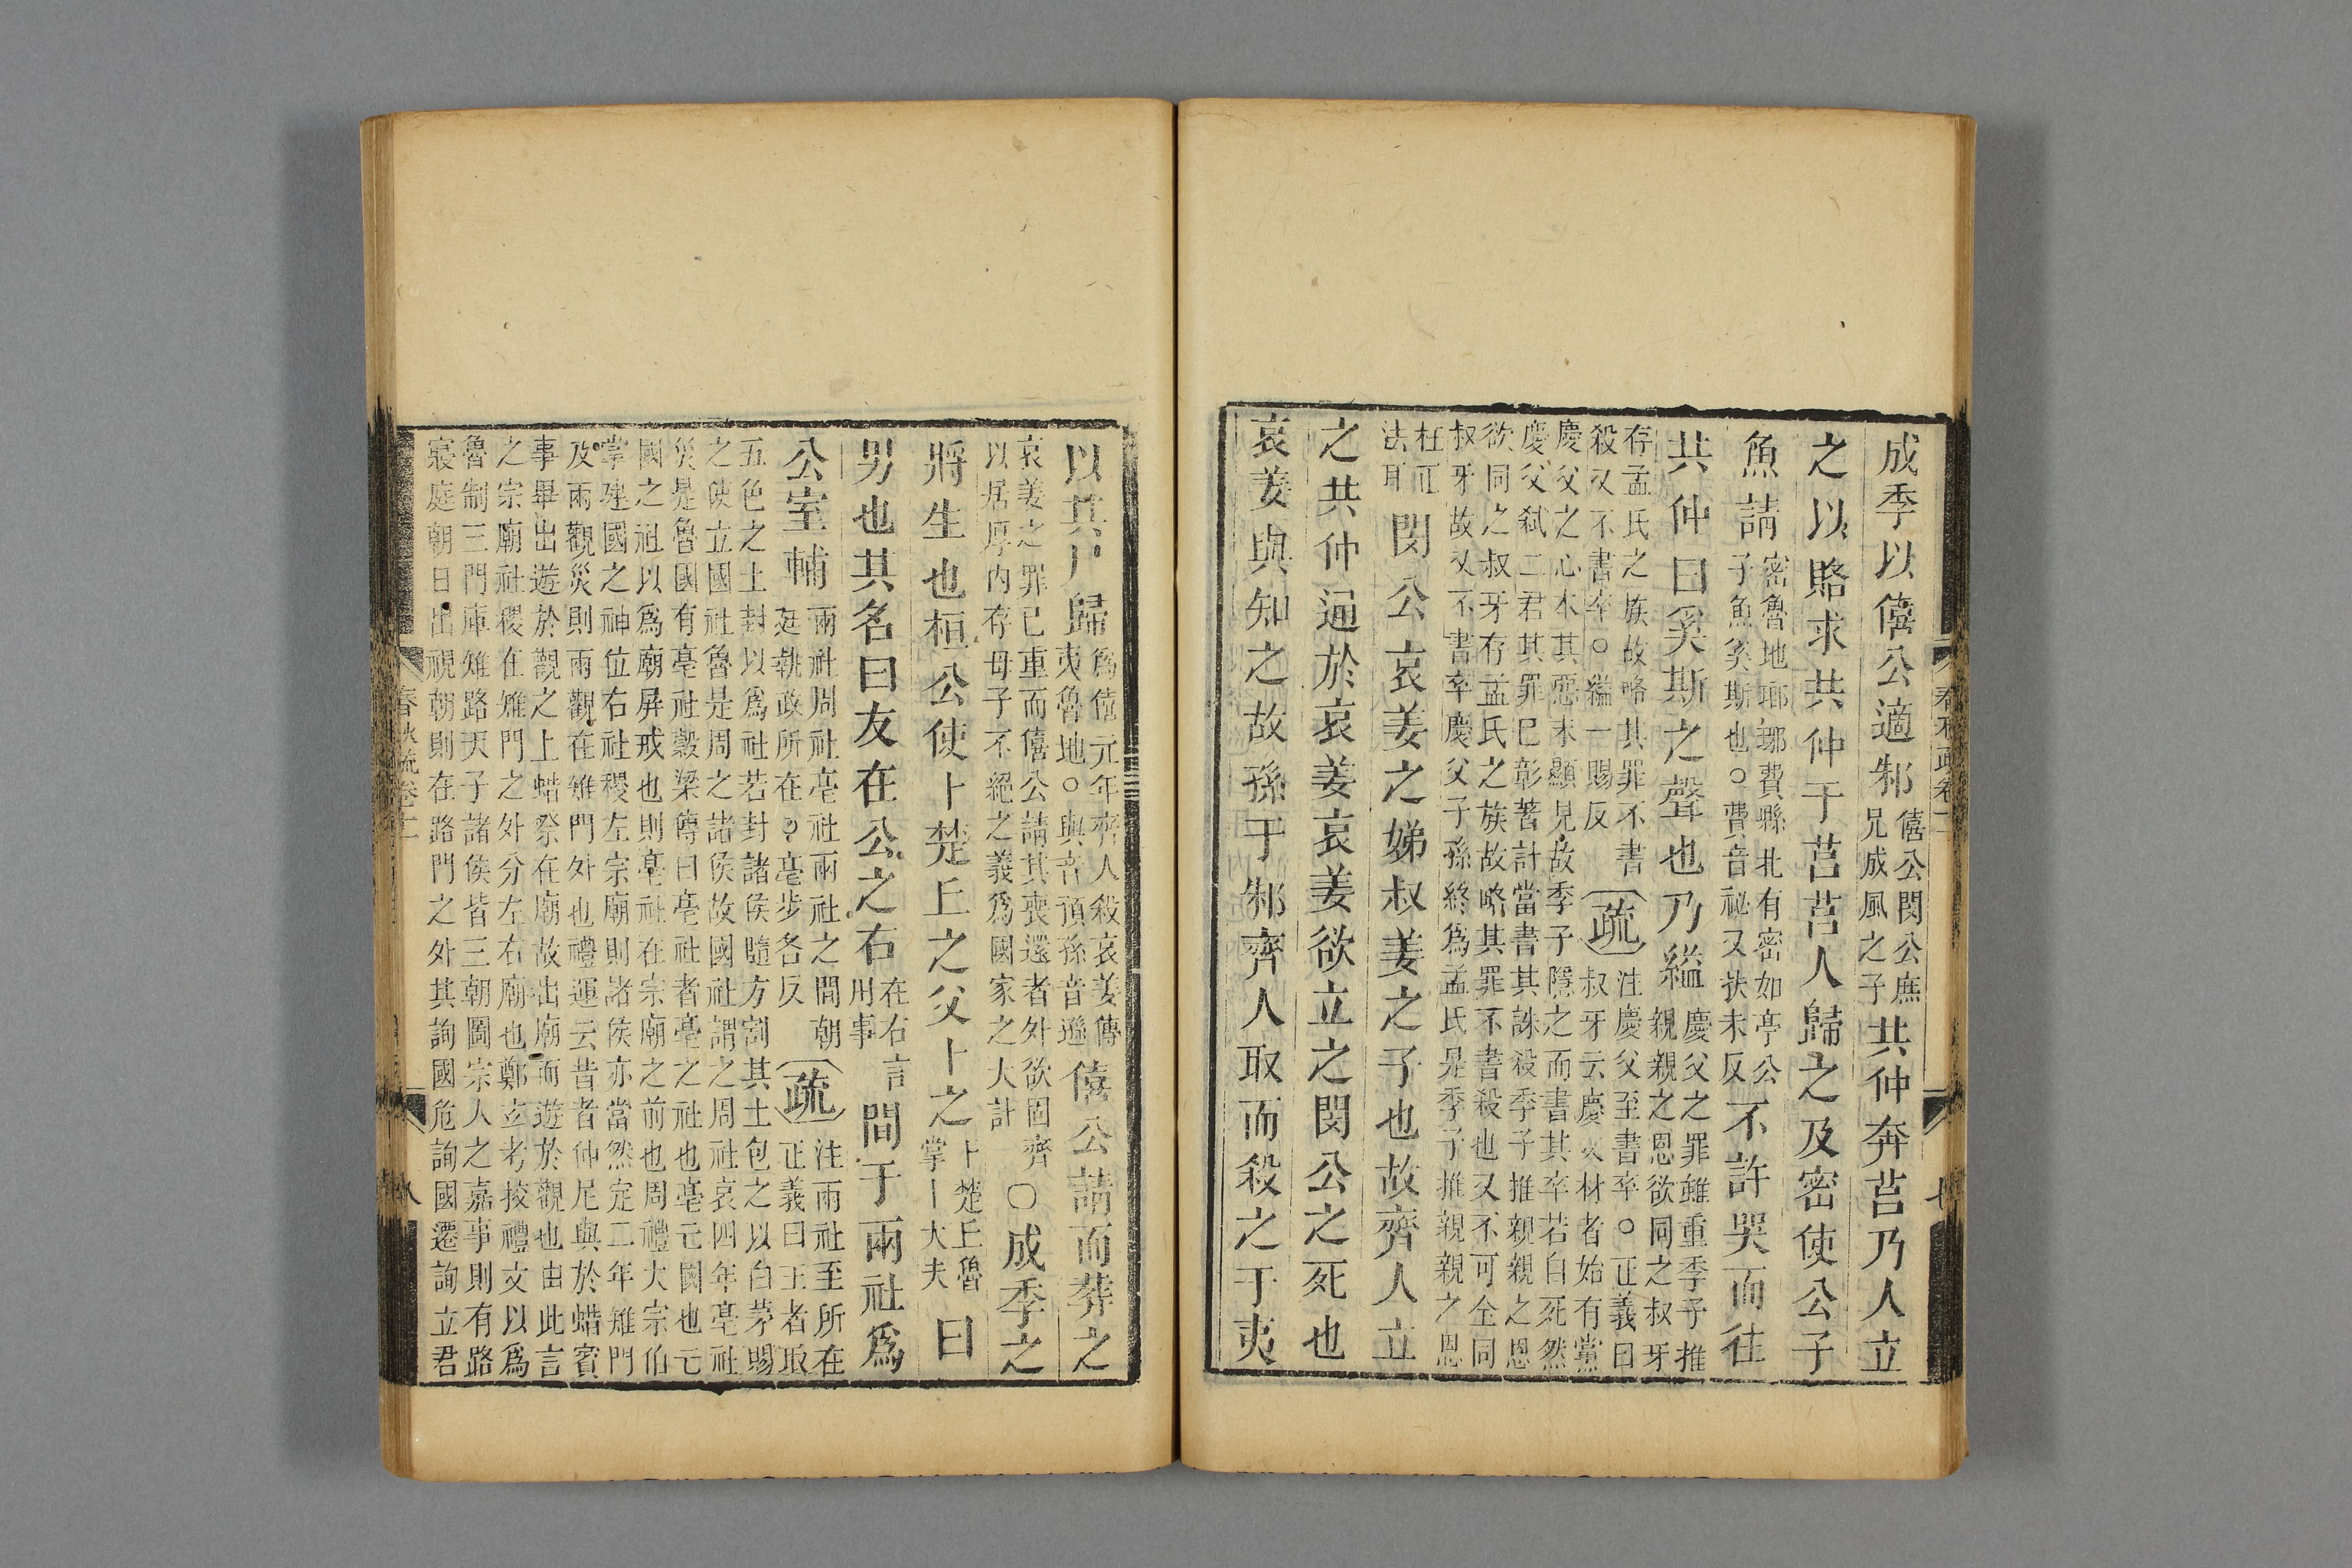 成季以僖公適邾僖公閔公庶兄成風之子共仲奔莒乃入立
之以賂求共仲于莒莒人歸之及密使公子
魚請密魯地瑯琊費縣北有密如亭公子魚奚斯也○費音祕又扶未反不許哭而往
共仲曰奚斯之聲也乃縊慶父之罪雖重季子推親親之恩欲同之叔牙
存孟氏之族故略其罪不書殺又不書卒○縊一賜反疏注慶父至書卒○正義曰叔牙云慶父材者始有黨
慶父之心本其惡未顯見故季子隱之而書其卒若自死然慶父弒二君其罪已彰著計當書其誅殺季子推親親之恩
欲同之叔牙存孟氏之族故略其罪不書殺也又不可全同叔牙故又不書卒慶父子孫終爲孟氏是季子推親親之恩
枉正法耳閔公哀姜之娣叔姜之子也故齊人立
之共仲通於哀姜哀姜欲立之閔公之死也
哀姜與知之故孫于邾齊人取而殺之于夷
春秋疏卷十一
七
以其尸歸爲僖元年齊人殺哀姜傳夷魯地○與音預孫音遜僖公請而葬之
哀姜之罪已重而僖公請其喪還者外欲固齊以居厚內存母子不絕之義爲國家之大計○成季之
將生也桓公使卜楚丘之父卜之卜楚丘魯掌卜大夫曰
男也其名曰友在公之右在右言用事間于兩社爲
公室輔兩社周社亳社兩社之間朝廷執政所在○亳步各反疏注兩社至所在正義曰王者取
五色之土封以爲社若封諸侯隨方割其土包之以白茅賜之使立國社魯是周之諸侯故國社謂之周社哀四年亳社
災是魯國有亳社穀梁傳曰亳社者亳之社也亳元國也元國之社以爲廟屏戒也則亳社在宗廟之前也周禮大宗伯
掌建國之神位右社稷左宗廟則諸侯亦當然定二年雉門及兩觀災則兩觀在雉門外也禮運云昔者仲尼與於蜡賓
事畢出遊於觀之上蜡祭在廟故出廟而遊於觀也由此言之宗廟社稷在雉門之外分左右廟也鄭玄考挍禮文以爲
魯制三門庫雉路天子諸侯皆三朝圖宗人之嘉事則有路寢庭朝日出視朝則在路門之外其詢國危詢國遷詢立君
春秋疏卷十一
八